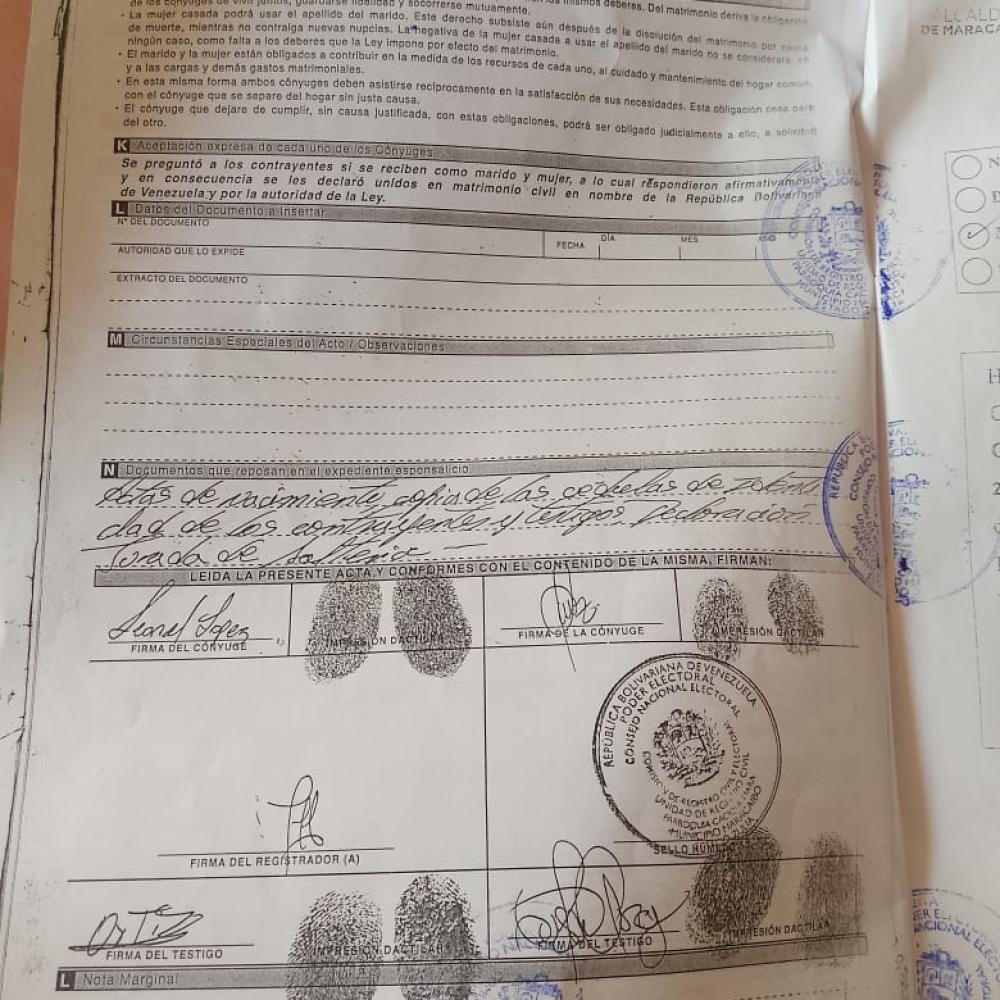 de los cónyuges de vivir juntos, guardarse fidelidad y socorrerse mutuamente.
mismos deberes. Del matrimonio deriva la obligación
• La mujer casada podrá usar el apellido del marido. Este derecho subsiste aún después de la disolución del matrimonio por causa
de muerte, mientras no contraiga nuevas nupcias. La negativa de la mujer casada a usar el apellido del marido no se considerará, en
ningún caso, como falta a los deberes que la Ley impone por efecto del matrimonio.
• El marido y la mujer están obligados a contribuir en la medida de los recursos de cada uno, al cuidado y mantenimiento del hogar común,
y a las cargas y demás gastos matrimoniales.
• En esta misma forma ambos cónyuges deben asistirse recíprocamente en la satisfacción de sus necesidades. Esta obligación cesa para
con el cónyuge que se separe del hogar sin justa causa.
• El cónyuge que dejare de cumplir, sin causa justificada, con estas obligaciones, podrá ser obligado judicialmente a ello, a solicitud
del otro.
K Aceptación expresa de cada uno de los Cónyuges
Se preguntó a los contrayentes si se reciben como marido y mujer, a lo cual respondieron afirmativamente
y en consecuencia se les declaró unidos en matrimonio civil en nombre de la República Bolivariana
de Venezuela y por la autoridad de la Ley.
L Datos del Documento a Insertar
N° DEL DOCUMENTO
FECHA DÍA MES AÑO
AUTORIDAD QUE LO EXPIDE
EXTRACTO DEL DOCUMENTO
M Circunstancias Especiales del Acto / Observaciones
N Documentos que reposan en el expediente esponsalicio
Actas de nacimiento, copia de las cedulas de
dad de los contrayentes y testigos Declaracion
Jurada de Solteria
LEIDA LA PRESENTE ACTA Y CONFORMES CON EL CONTENIDO DE LA MISMA, FIRMAN:
Leonel Lopez
FIRMA DEL CÓNYUGE
IMPRESIÓN DACTILAR
FIRMA DE LA CÓNYUGE
IMPRESIÓN DACTILAR
REPÚBLICA BOLIVARIANA DE VENEZUELA
PODER ELECTORAL
CONSEJO NACIONAL ELECTORAL
COMISIÓN DE REGISTRO CIVIL Y ELECTORAL
UNIDAD DE REGISTRO CIVIL
MUNICIPIO MARACAIBO
FIRMA DEL REGISTRADOR (A)
SELLO HÚMEDO
ORTIZ
FIRMA DEL TESTIGO
IMPRESIÓN DACTILAR
FIRMA DEL TESTIGO
IMPRESIÓN DACTILAR
L Nota Marginal
DE MARACA